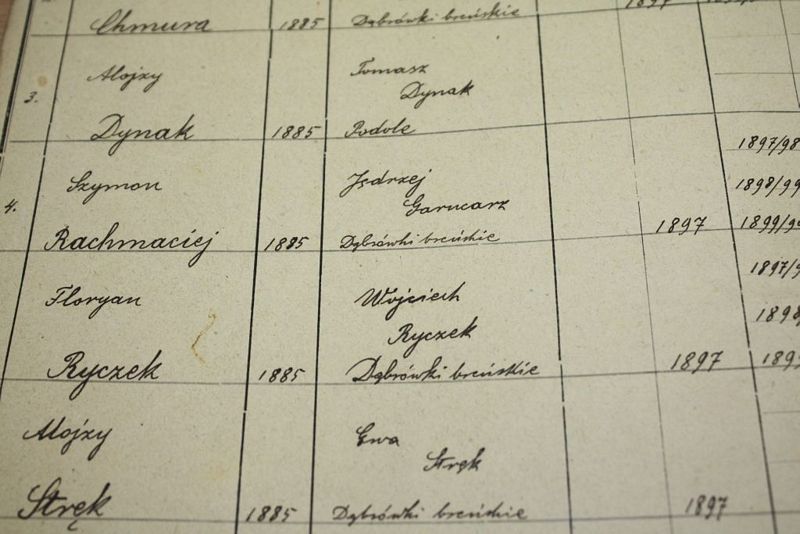 Chmura 1885 Dąbrówki breńskie 1897
Alojzy Tomasz
3. Dynak
Dynak 1885 Podole 1897/98
Szymon Jędrzej 1898/99
4. Garncarz
Rachmaciej 1885 Dąbrówki breńskie 1897 1899/90
1897/9
Floryan Wojciech 1898
Ryczek
Ryczek 1885 Dąbrówki breńskie 1897 1899
Alojzy Ewa
Stręk
Stręk 1885 Dąbrówki breńskie 1897